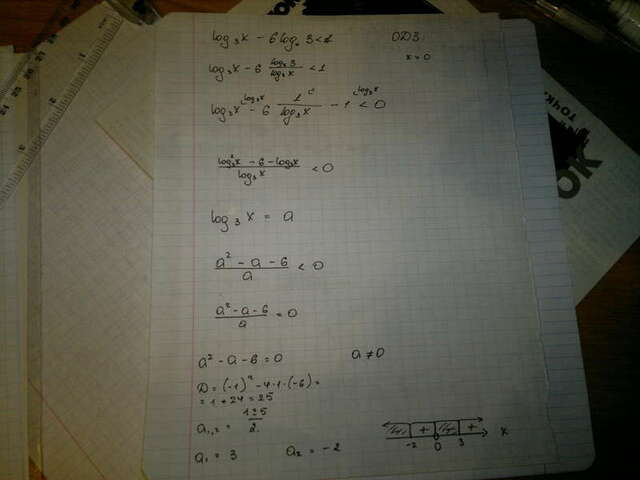 log₃x - 6 logₓ 3 < 1 ОДЗ
x = 0
log₃x - 6 log₃3/log₃x < 1
log₃x - 6 1/log₃x - 1 < 0
(log₃²x - 6 - log₃x)/log₃x < 0
log₃ x = a
(a² - a - 6)/a < 0
(a² - a - 6)/a = 0
a² - a - 6 = 0 a ≠ 0
D = (-1)² - 4·1·(-6) =
= 1 + 24 = 25
a₁,₂ = (1±5)/2
- + - + x
-2 0 3
a₁ = 3 a₂ = -2
ТОЧК
ОК